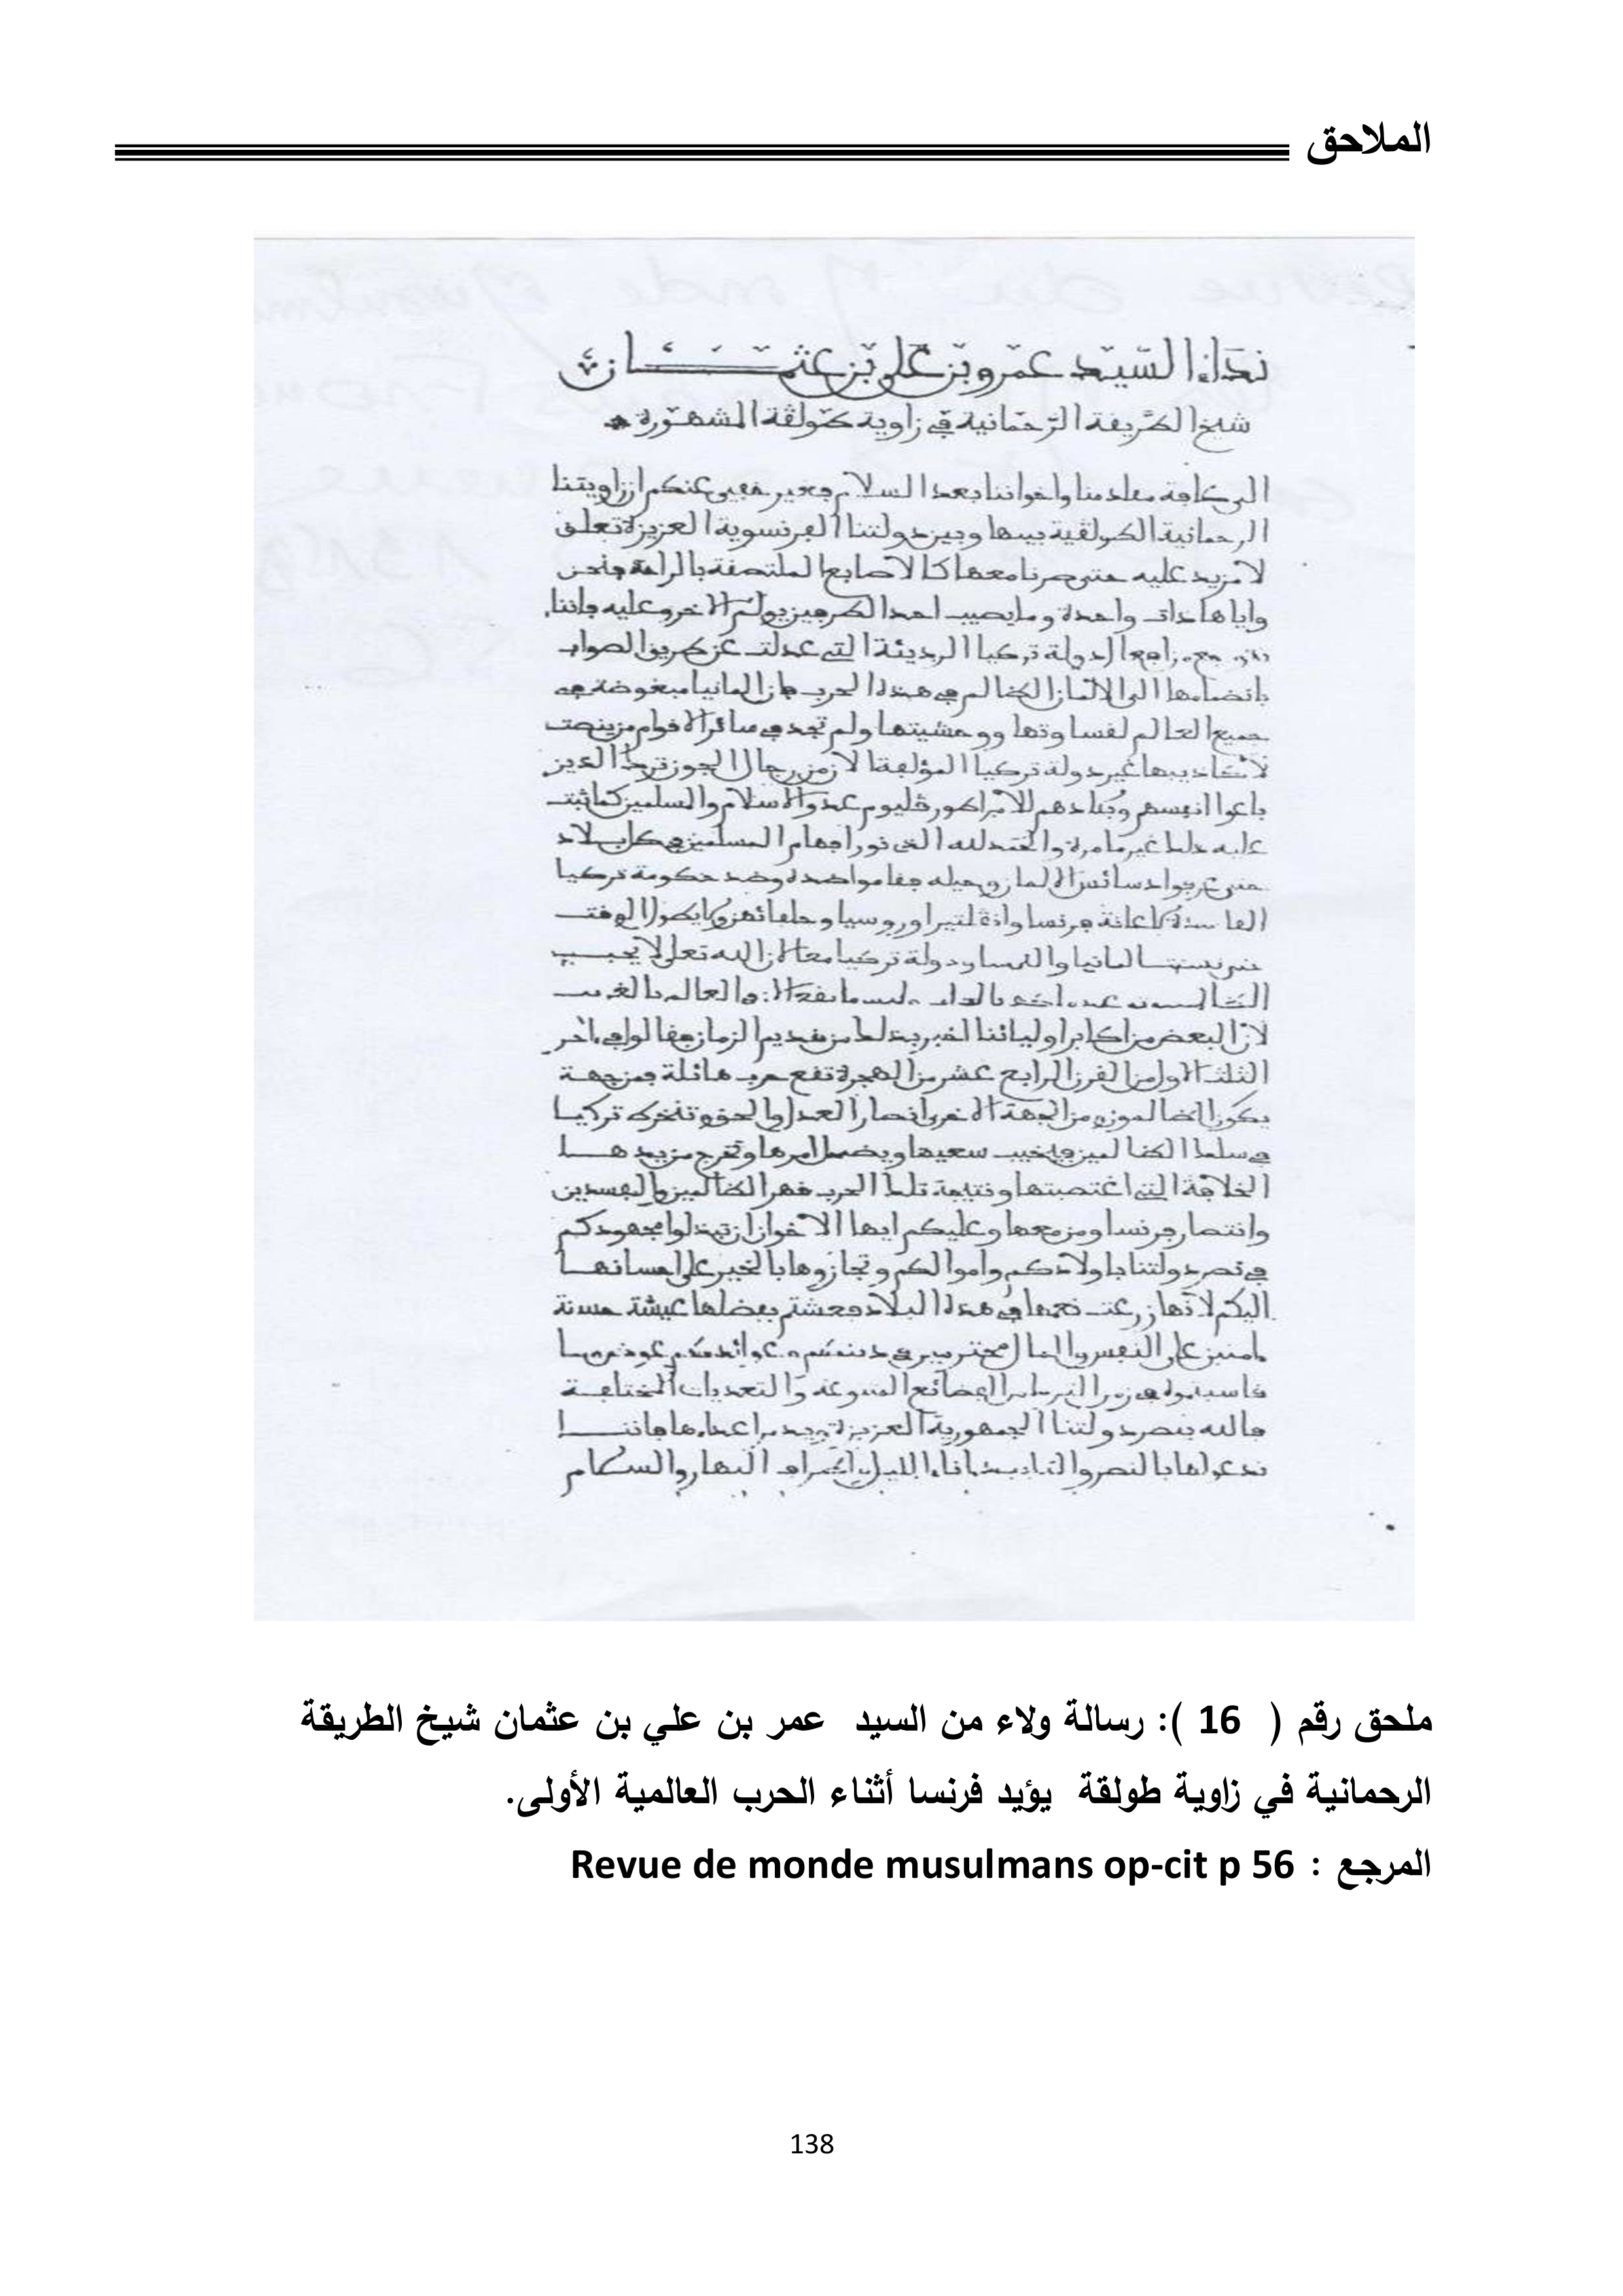 الملاحق
نداء السيد عمرو بن علي بن عثمان
شيخ الطريقة الرحمانية في زاوية طولقة المشهورة
الى كافة مقادمنا واخواننا بعد السلام فغير خفي عنكم ان زاويتنا
الرحمانية الطولقية بينها وبين دولتنا الفرنسوية العزيزة تعلق
لا مزيد عليه حتى صرنا معها كالاصابع الملتصقة بالراحة فنحن
واياها ذات واحدة وما يصيب احد الطرفين يولم الاخر وعليه فاننا
الدولة تركيا الرديئة التي عدلت عن طريق الصواب
بانضمامها الى الالمان الظالم في هذه الحرب فان المانيا مبغوضة في
جميع العالم لقساوتها ووحشيتها ولم تجد في سائر الاقوام من ينصت
لاكاذيبها غير دولة تركيا المؤلفة الان من رجال الجون ترك الذين
باعوا انفسهم وبلادهم للانبراطور ڤليوم عدو الاسلام والمسلمين كما ثبت
عليه ذلك غير ما مرة والحمد لله الذي نور افهام المسلمين في كل بلاد
حتى عرفوا دسائس الالمان وحيله فقاموا ضده وضد حكومة تركيا
الفاسدة باعانة فرنسا وانڤلتيرا وروسيا وحلفائهن ولا يطول الوقت
حتى المانيا والنمسا ودولة تركيا معا لان الله تعلى لا يحب
لان البعض من اكابر اوليائنا اخبر بذلك من قديم الزمان فقالوا في ءاخر
الثلث الاول من القرن الرابع عشر من الهجرة تقع حرب هائلة فمن جهة
يكون الظالمون ومن الجهة الاخرى انصار العدل والحق وتنخرط تركيا
في سلك الظالمين فيخيب سعيها ويضمحل امرها وتخرج من يدها
الخلافة التي اغتصبتها ونتيجة تلك الحرب قهر الظالمين والمفسدين
وانتصار فرنسا ومن معها وعليكم ايها الاخوان ان تبذلوا مجهودكم
في نصر دولتنا باولادكم واموالكم وتجازوها بالخير على احسانها
اليكم لانها زرعت نعمها في هذه البلاد فعشتم بفضلها عيشة حسنة
ءامنين على النفس والمال محترمين في دينكم وعوائدكم عوض ما
قاسيتموه في زمن الترك من الفضائع المتنوعة والتعديات المختلفة
فالله ينصر دولتنا الجمهورية العزيزة ويبيد اعداءها فاننا
ندعو لها بالنصر والتاييد ءاناء الليل واطراف النهار والسلام
ملحق رقم ( 16 ): رسالة ولاء من السيد عمر بن علي بن عثمان شيخ الطريقة
الرحمانية في زاوية طولقة يؤيد فرنسا أثناء الحرب العالمية الأولى.
المرجع : Revue de monde musulmans op-cit p 56
138